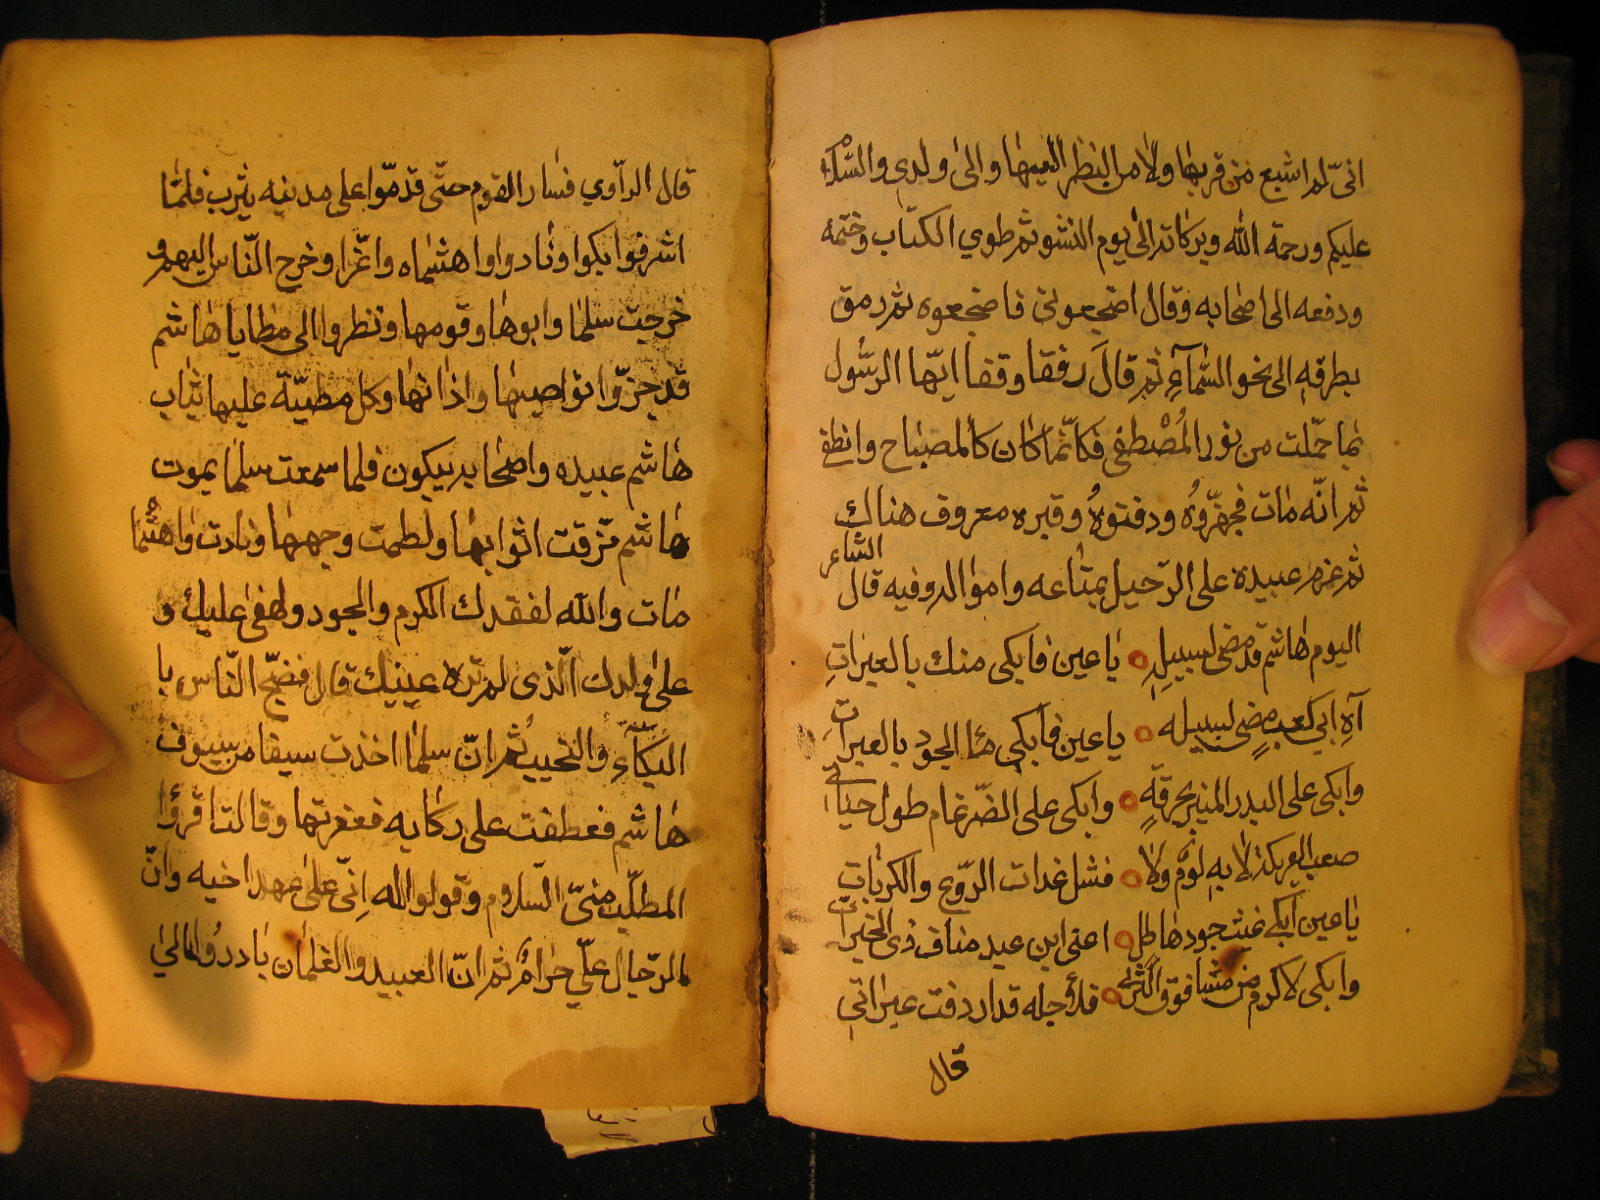 انّى لم اشبع من قربها ولا من النظر اليها والى ولدى والسّلام
عليكم ورحمة الله وبركاته الى يوم النشو ثم طوي الكتاب وختمه
ودفعه الى اصحابه وقال اضجعونى فاضجعوه ثم رمق
بطرفه الى نحو السّمآءِ ثم قالَ رفقا وقفا ايّها الرسّول
بما حمّلت من نور المُصْطفى فكانّما كان كالمصباح وانطفى
ثم انّه مات فجهّزوُه ودفنوُه وقبره معروف هناك
ثم عزم عبيدة على الرّحيل بمتاعه وامواله وفيه قال الشاعر
اليوم هاشم قد مضى لسبيلِهِ يا عين فابكى منك بالعبراتِ
آهِ ابي كعبٍ مضى لسبيله يا عين فابكي الجود بالعبراتِ
وابكى على البدر المنير بحرقةٍ وابكى على الضّرغام طول حياتي
صعب العريكة لا به لومٌ ولا فشل غدات الرّوع والكرباتِ
يا عين ابكي غيث جود هاطلٍ اعنى ابن عبد مناف ذى الخيراتِ
وابكى لاكرم من مشا فوق الثرى فلاجله قد اردفت عبراتى
قال
قال الرآوي فسار القوم حتّى قدمّوا على مدينه يثرب فلمّا
اشرفوا بكوا ونادوا واهشماه واعّزا وخرج النّاس اليهم و
خرجت سلما وابوها وقومها ونظروا الى مطايا هاشم
قد جزّوا نواصيها واذانها وكل مطيّة عليها ثياب
هاشم عبيده واصحابه يبكون فلما سمعت سلما بموت
هاشم مّزقت اثوابها ولطمت وجهها ونادت واهشماه
مات والله لفقدك الكرم والجود ولهفى عليك و
على ولدك الّذى لم تره عينيك قال فضجّ النّاس با
البكآء والنحيب ثم انّ سلما اخذت سيفا من سيوف
هاشم فعطفت على ركابه فعقرتها وقالت اقرؤا
المطلّب منىّ السّلام وقولوا لله اِنّى على عهد اخيه وانّ
الرّجال علّي حرامٌ ثم انّ العبيد والغلمان بادروا الى